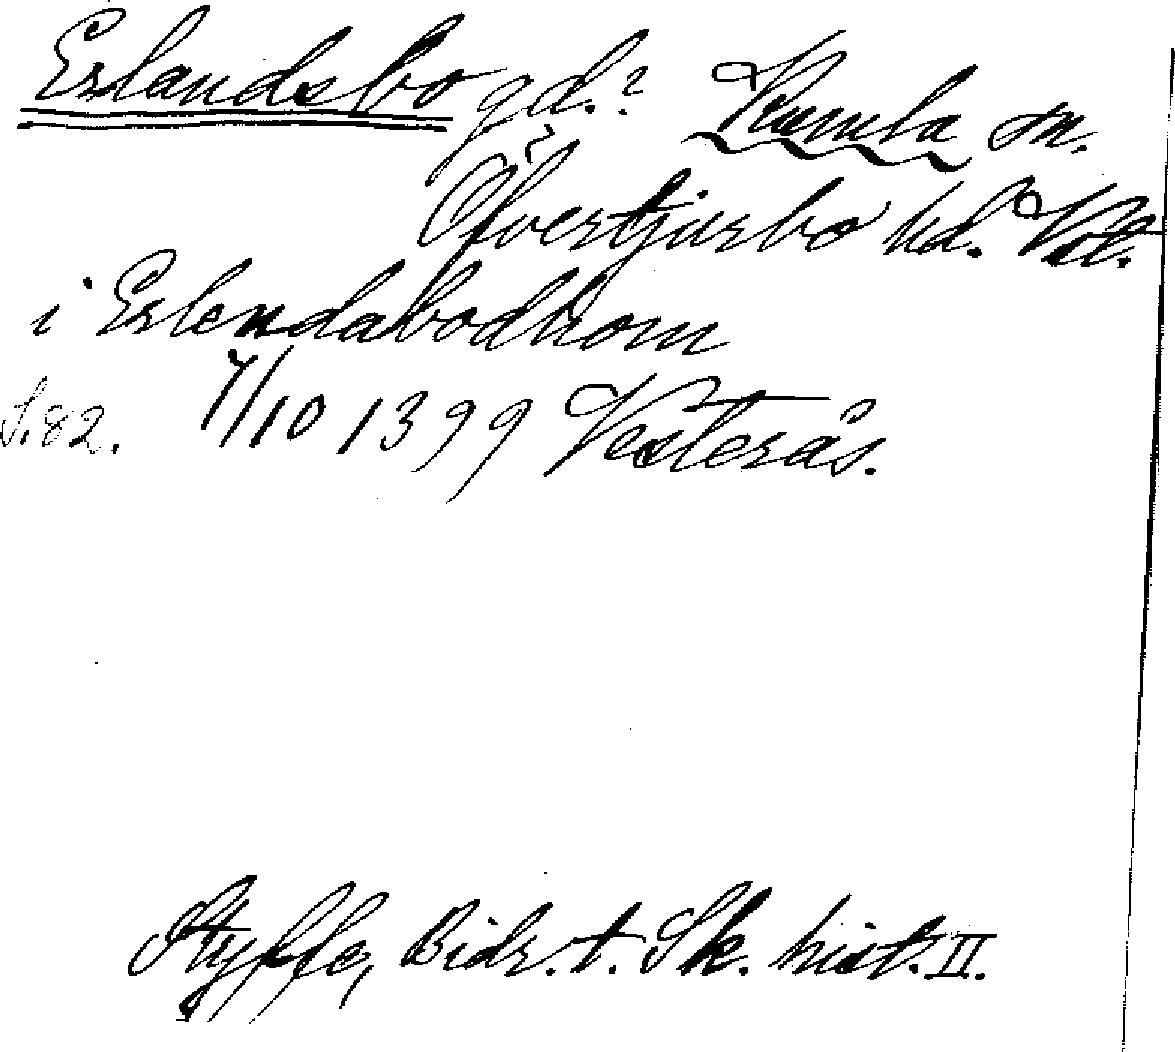 Erlandsbo gd.? Kumla sn.
Öfvertjurbo hd. Vstl.
i Erlendabodhom
S. 82. 7/10 1399 Vesterås.
Styffe, Bidr. t. Sk. hist. II.